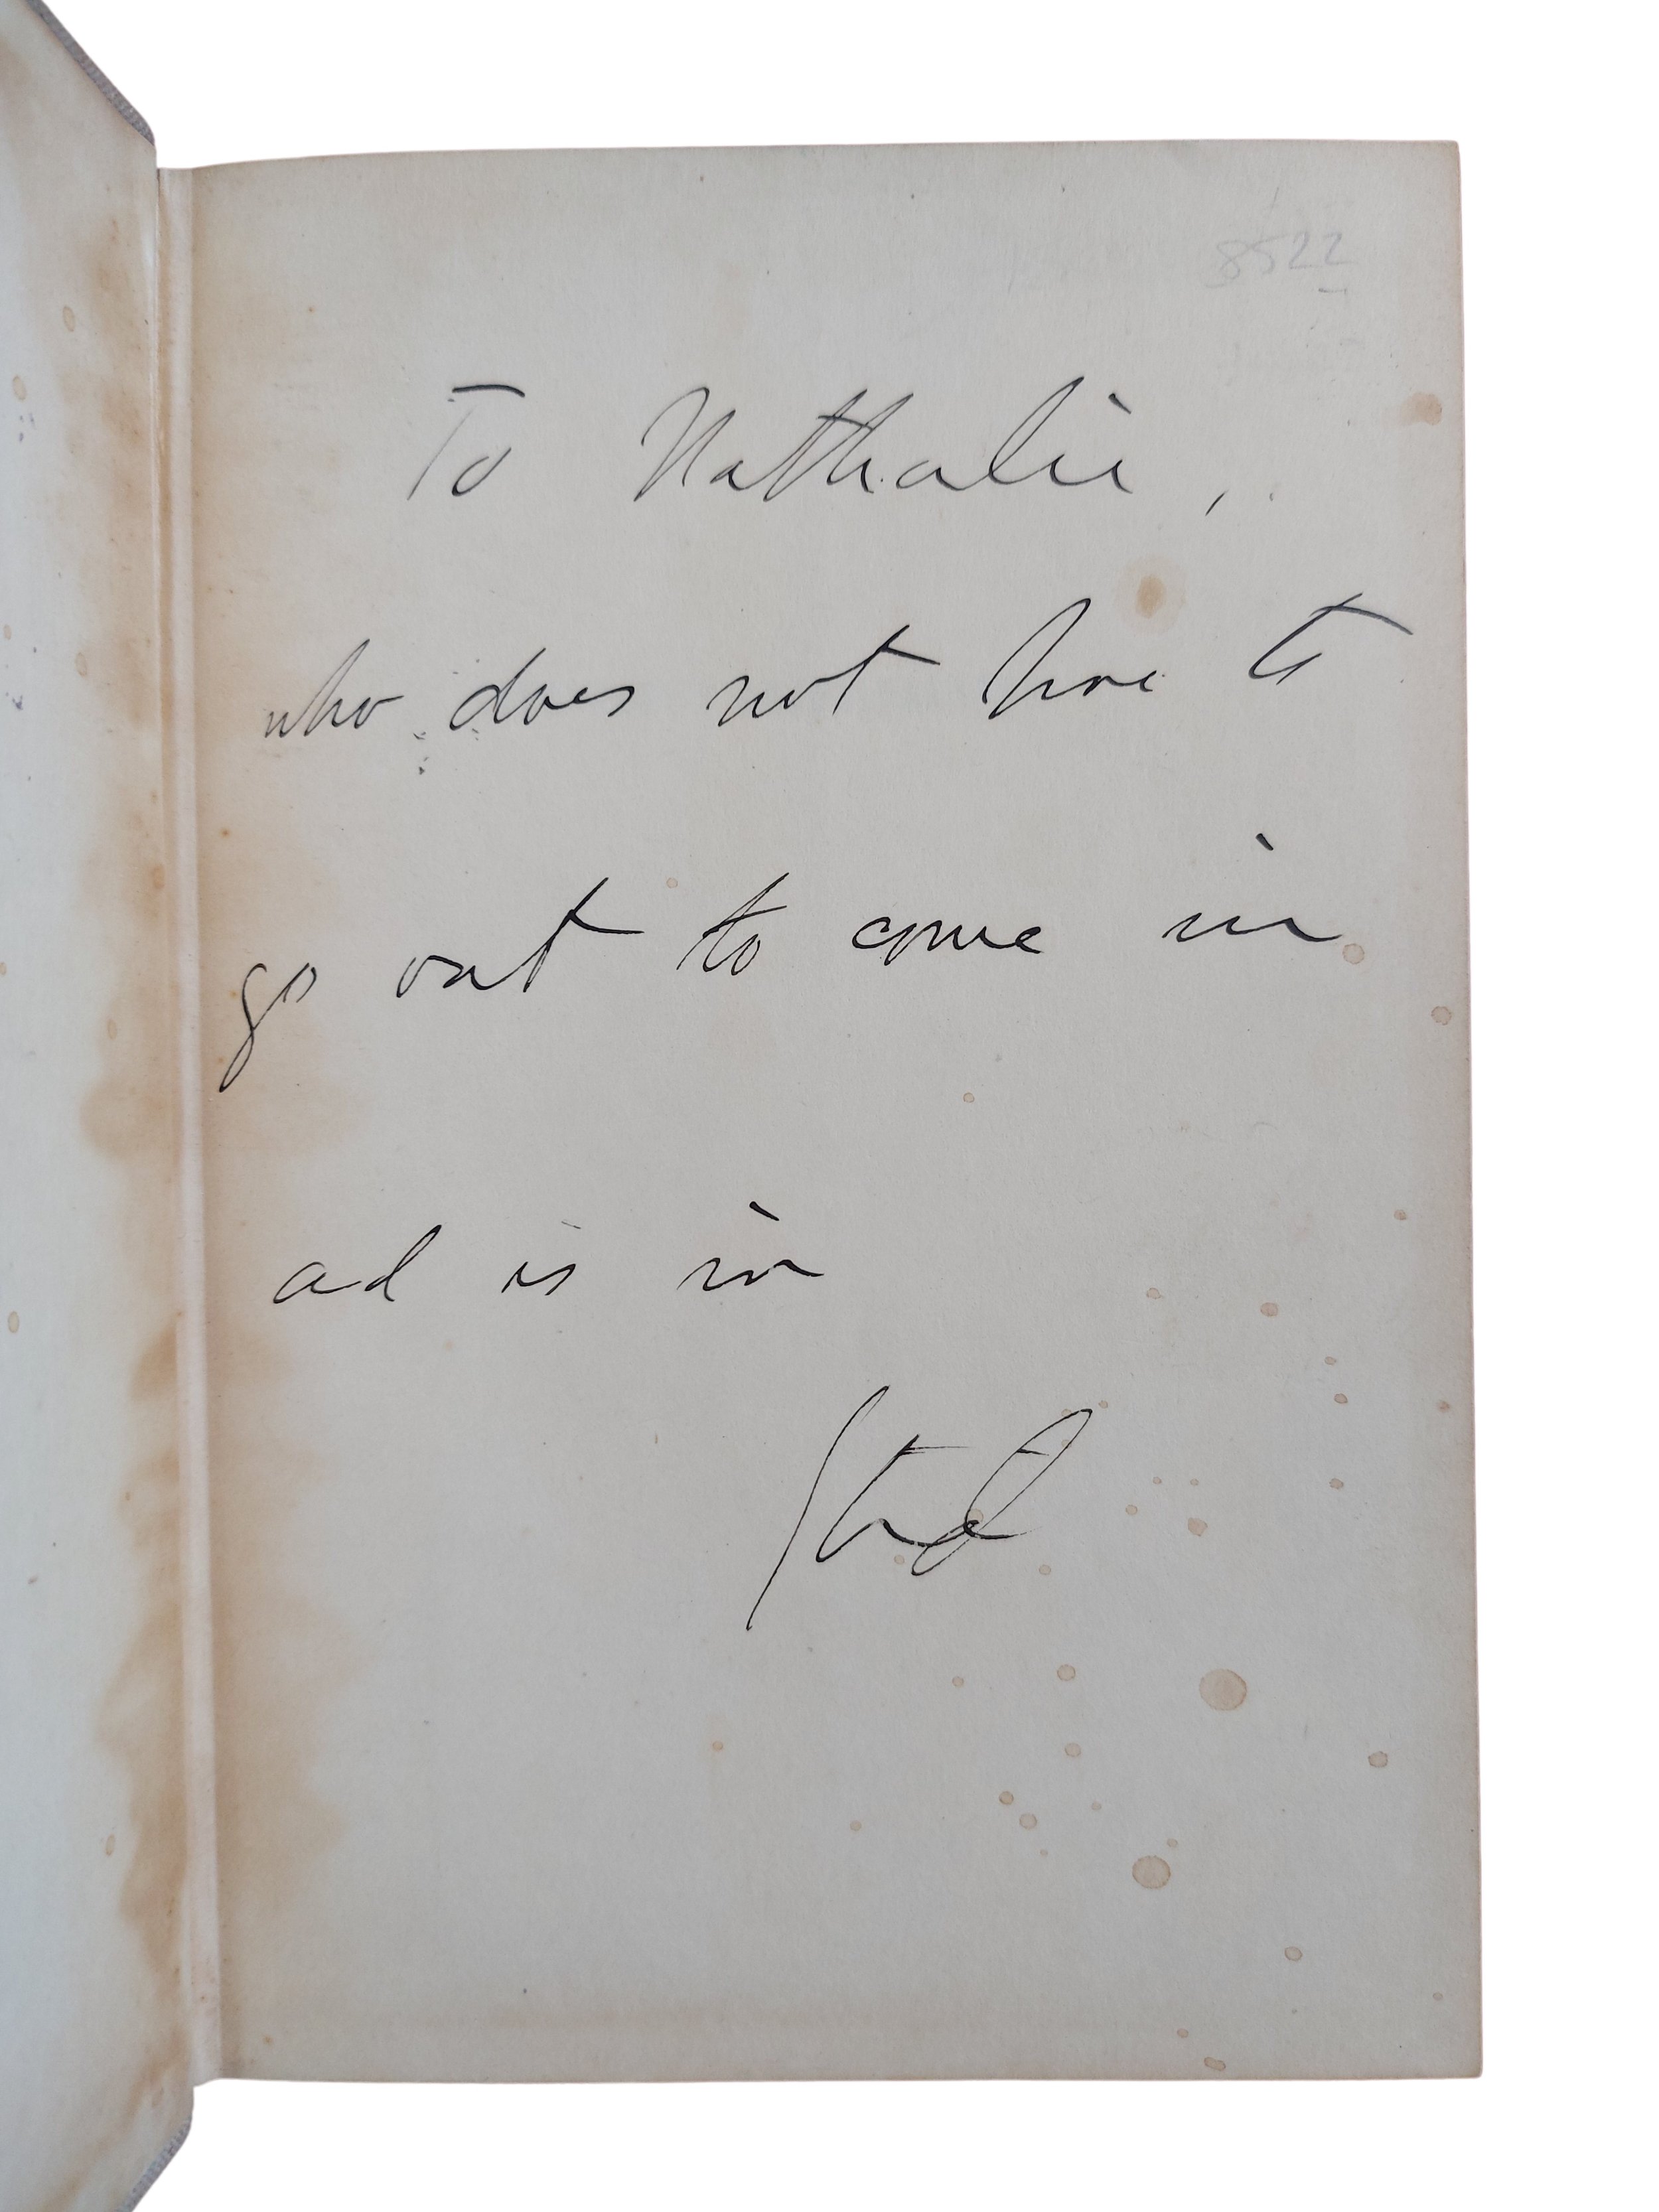 8522
To Nathalie,
who does not have to
go out to come in
ad is in